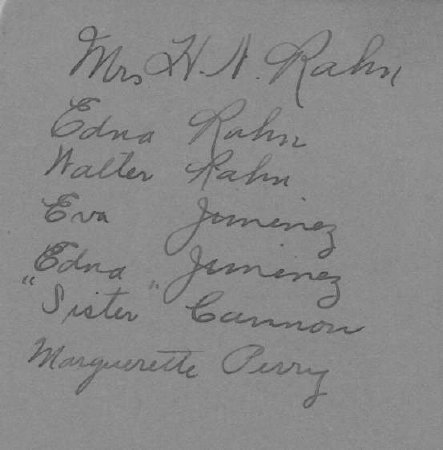 Mrs H. N. Rahn
Edna Rahn
Walter Rahn
Eva Jiminez
Edna Jiminez
"Sister" Cannon
Marguerette Perry